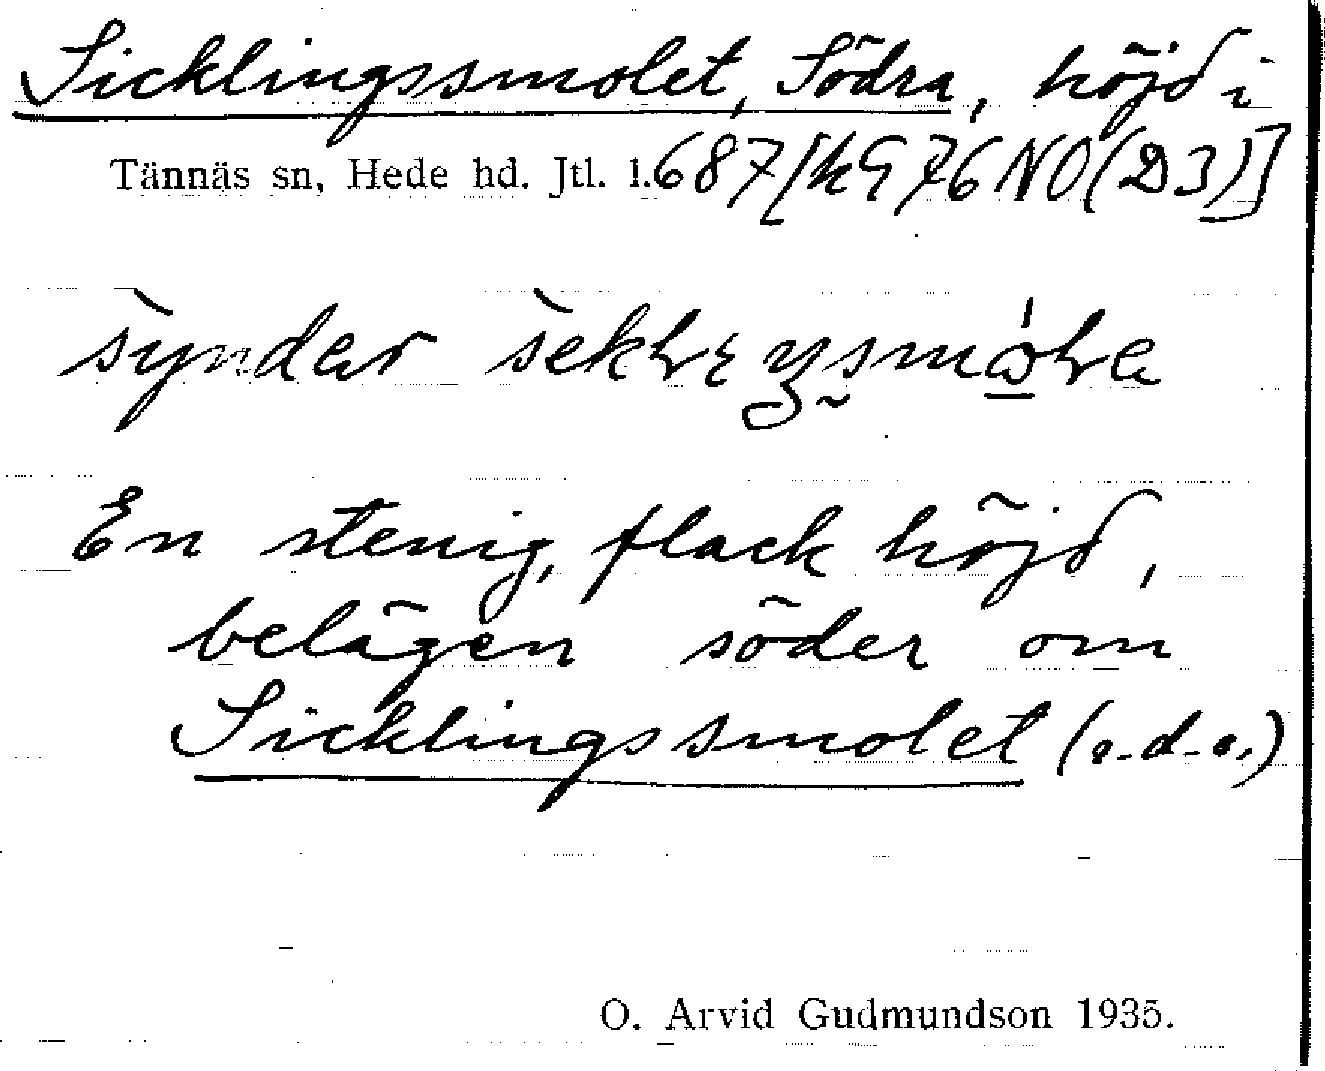 Sicklingssmolet, Södra, höjd i
Tännäs sn, Hede hd. Jtl. l. 687 [kG 76 NO (D3)]
En stenig, flack höjd,
belägen söder om
Sicklingssmolet (s.d.o.)
O. Arvid Gudmundson 1935.